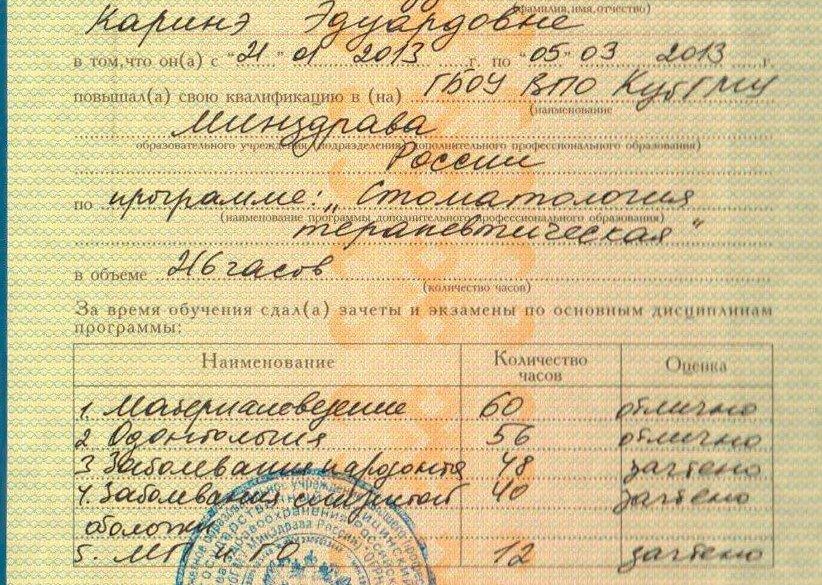 (фамилия, имя, отчество)
Каринэ Эдуардовне
в том, что он(а) с "21" 01 2013 г. по "05" 03 2013 г.
повышал(а) свою квалификацию в (на) ГБОУ ВПО КубГМУ
(наименование
Минздрава
образовательного учреждения (подразделения) дополнительного профессионального образования)
России
по программе: „Стоматология
(наименование программы дополнительного профессионального образования)
терапевтическая"
в объеме 216 часов
(количество часов)
За время обучения сдал(а) зачеты и экзамены по основным дисциплинам
программы:
Наименование Количество часов Оценка
1. Материаловедение 60 отлично
2 Одонтология 56 отлично
3 Заболевания пародонта 48 зачтено
4. Заболевания слизистой 40 зачтено
оболочки
5. МП и ГО 12 зачтено